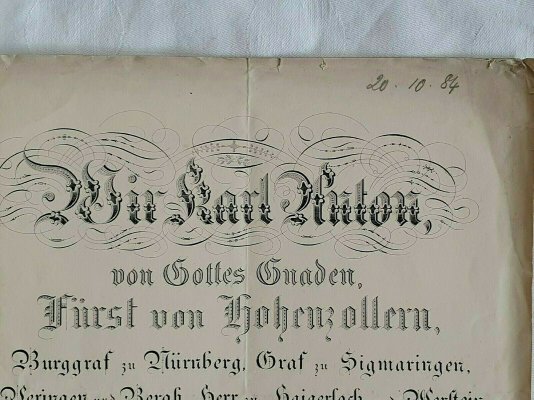 20. 10. 84
Wir Karl Anton,
von Gottes Gnaden,
Fürst von Hohenzollern,
Burggraf zu Nürnberg, Graf zu Sigmaringen,
Veringen und Bergh, Herr zu Haigerloch und Werstein